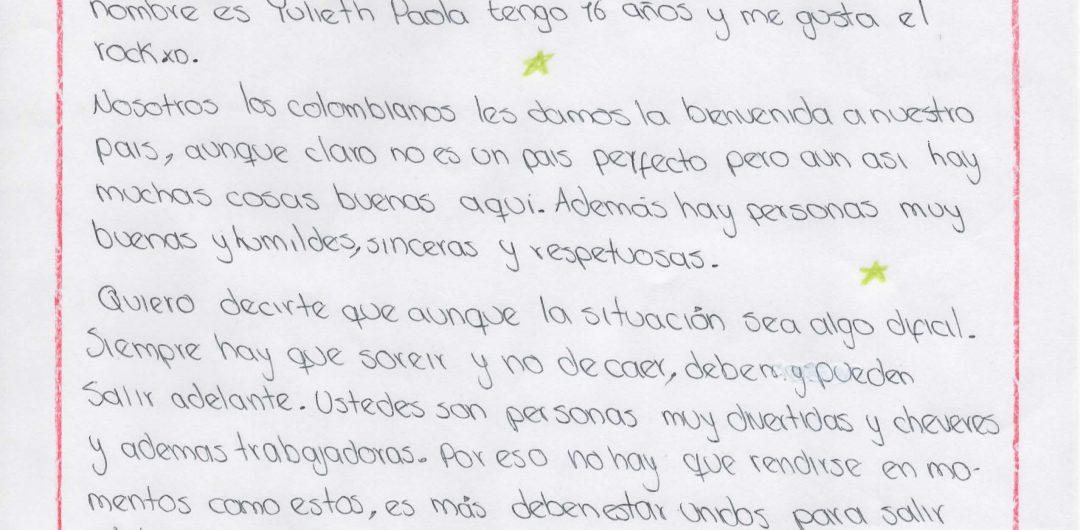 nombre es Yulieth Paola tengo 16 años y me gusta el
rock xD.
Nosotros los colombianos les damos la bienvenida a nuestro
pais, aunque claro no es un pais perfecto pero aun asi hay
muchas cosas buenas aqui. Además hay personas muy
buenas y humildes, sinceras y respetuosas.
Quiero decirte que aunque la situación sea algo dificial.
Siempre hay que soreir y no decaer, deben y pueden
Salir adelante. Ustedes son personas muy divertidas y cheveres
y ademas trabajadoras. Por eso no hay que rendirse en mo-
mentos como estos, es más deben estar unidos para salir